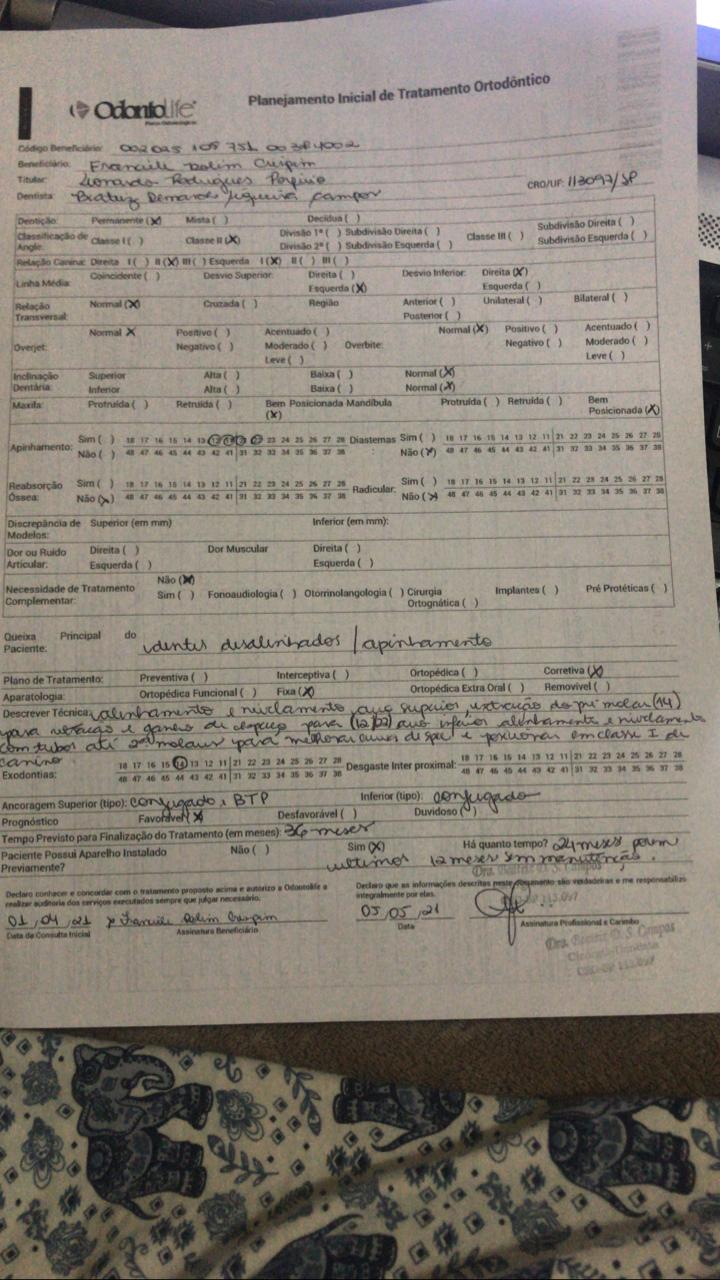 OdontoLife
Planos Odontológicos
Planejamento Inicial de Tratamento Ortodôntico
Código Beneficiário: 002025 108 751
Beneficiário: Franciele Rolim Crispim
Titular: Leonardo Rodrigues Porfirio
CRO/UF: 113097/SP
Dentista: Beatriz Siqueira Campos
Dentição: Permanente (X) Mista ( ) Decídua ( )
Classificação de Angle: Classe I ( ) Classe II (X) Divisão 1ª ( ) Subdivisão Direita ( ) Classe III ( ) Subdivisão Direita ( )
Divisão 2ª ( ) Subdivisão Esquerda ( ) Subdivisão Esquerda ( )
Relação Canina: Direita I ( ) II (X) III ( ) Esquerda I (X) II ( ) III ( )
Linha Média: Coincidente ( ) Desvio Superior: Direita ( ) Desvio Inferior: Direita (X)
Esquerda (X) Esquerda ( )
Relação Transversal: Normal (X) Cruzada ( ) Região Anterior ( ) Unilateral ( ) Bilateral ( )
Posterior ( )
Overjet: Normal X Positivo ( ) Acentuado ( ) Overbite: Normal (X) Positivo ( ) Acentuado ( )
Negativo ( ) Moderado ( ) Negativo ( ) Moderado ( )
Leve ( ) Leve ( )
Inclinação Dentária: Superior Alta ( ) Baixa ( ) Normal (X)
Inferior Alta ( ) Baixa ( ) Normal (X)
Maxila: Protruída ( ) Retruída ( ) Bem Posicionada (X) Mandíbula Protruída ( ) Retruída ( ) Bem Posicionada (X)
Apinhamento: Sim ( ) 18 17 16 15 14 13 12 11 21 22 23 24 25 26 27 28 Diastemas: Sim ( ) 18 17 16 15 14 13 12 11 21 22 23 24 25 26 27 28
Não ( ) 48 47 46 45 44 43 42 41 31 32 33 34 35 36 37 38 Não (X) 48 47 46 45 44 43 42 41 31 32 33 34 35 36 37 38
Reabsorção Óssea: Sim ( ) 18 17 16 15 14 13 12 11 21 22 23 24 25 26 27 28 Radicular: Sim ( ) 18 17 16 15 14 13 12 11 21 22 23 24 25 26 27 28
Não (X) 48 47 46 45 44 43 42 41 31 32 33 34 35 36 37 38 Não (X) 48 47 46 45 44 43 42 41 31 32 33 34 35 36 37 38
Discrepância de Modelos: Superior (em mm) Inferior (em mm):
Dor ou Ruído Articular: Direita ( ) Dor Muscular Direita ( )
Esquerda ( ) Esquerda ( )
Necessidade de Tratamento Complementar: Não (X)
Sim ( ) Fonoaudiologia ( ) Otorrinolangologia ( ) Cirurgia Ortognática ( ) Implantes ( ) Pré Protéticas ( )
Queixa Principal do Paciente: dentes desalinhados / apinhamento
Plano de Tratamento: Preventiva ( ) Interceptiva ( ) Ortopédica ( ) Corretiva (X)
Aparatologia: Ortopédica Funcional ( ) Fixa (X) Ortopédica Extra Oral ( ) Removível ( )
Descrever Técnica: alinhamento e nivelamento arco superior, extração do pré molar (14)
para retração e ganho de espaço para (12/22) arco inferior alinhamento e nivelamento
com tubos até 2º molares para melhorar curva de spee e posicionar em classe I de
canino
Exodontias: 18 17 16 15 14 13 12 11 21 22 23 24 25 26 27 28 Desgaste Inter proximal: 18 17 16 15 14 13 12 11 21 22 23 24 25 26 27 28
48 47 46 45 44 43 42 41 31 32 33 34 35 36 37 38 48 47 46 45 44 43 42 41 31 32 33 34 35 36 37 38
Ancoragem Superior (tipo): conjugado, BTP Inferior (tipo): conjugado
Prognóstico Favorável (X) Desfavorável ( ) Duvidoso ( )
Tempo Previsto para Finalização do Tratamento (em meses): 36 meses
Paciente Possui Aparelho Instalado Previamente? Não ( ) Sim (X) Há quanto tempo? 24 meses porém
ultimos 12 meses sem manutenção.
Declaro conhecer e concordar com o tratamento proposto acima e autorizo a Odontolife a
realizar auditoria dos serviços executados sempre que julgar necessário.
Declaro que as informações descritas neste documento são verdadeiras e me responsabilizo
integralmente por elas.
01, 04, 21 x Franciele Rolim Crispim
Data da Consulta Inicial Assinatura Beneficiário
05, 05, 21
Data Assinatura Profissional e Carimbo
Dra. Beatriz D. S. Campos
Cirurgiã Dentista
CRO-SP 113.097